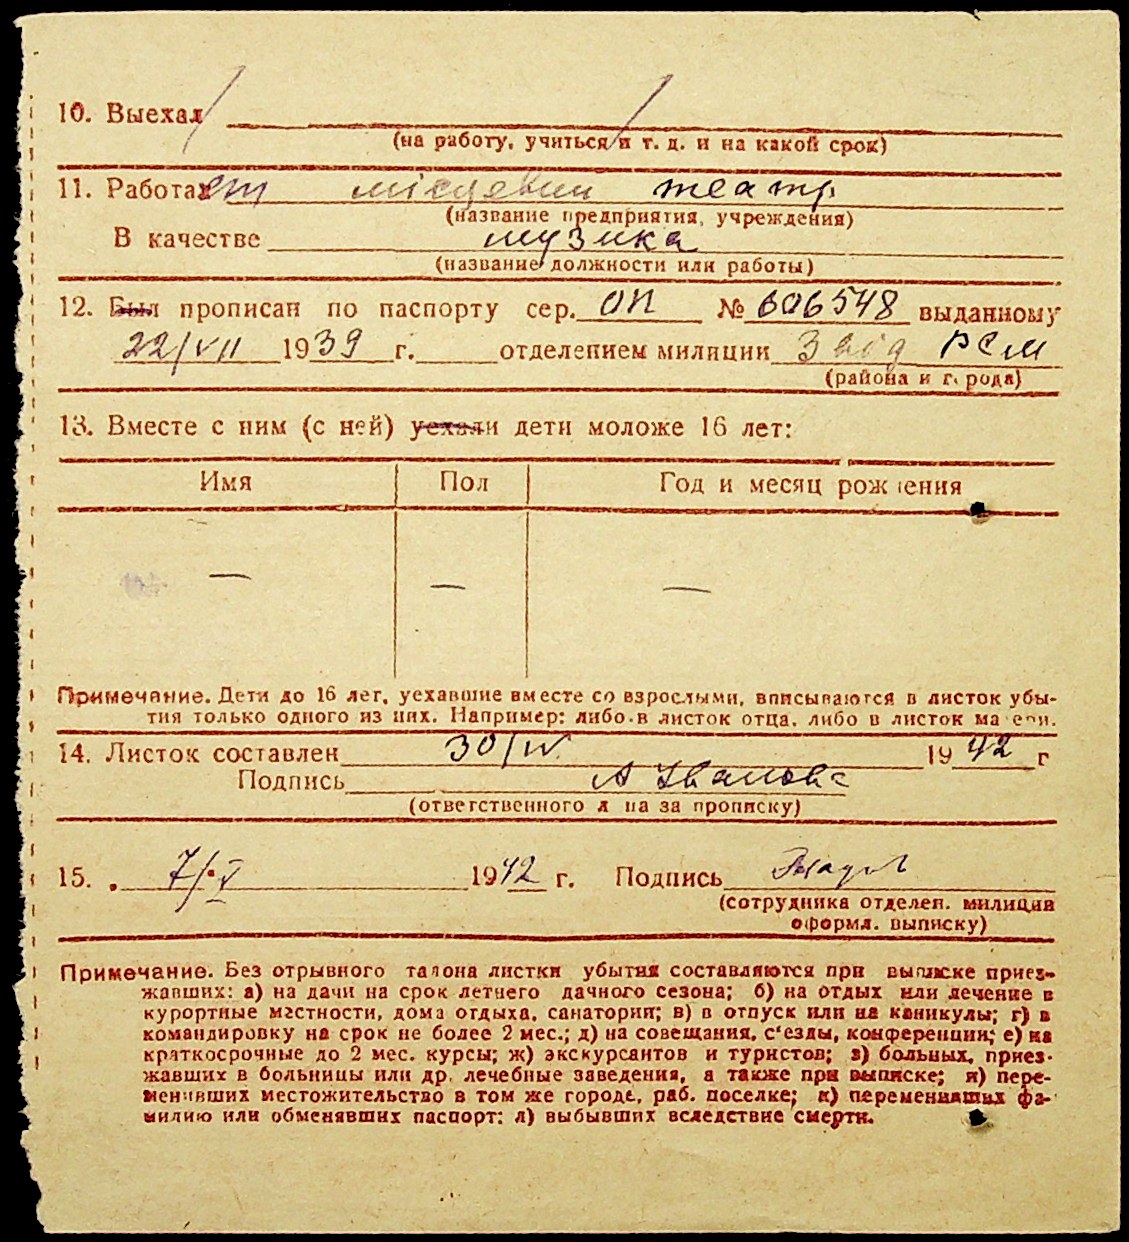 10. Выехал
(на работу, учиться и т. д. и на какой срок)
11. Работает місцевий театр.
(название предприятия, учреждения)
В качестве музика
(название должности или работы)
12. Был прописан по паспорту сер. ОП № 606548 выданному
22/VII 1939 г. отделением милиции 3 від РСМ
(района и города)
13. Вместе с ним (с ней) уехали дети моложе 16 лет:
Имя Пол Год и месяц рождения
— — —
Примечание. Дети до 16 лет, уехавшие вместе со взрослыми, вписываются в листок убы-
тия только одного из них. Например: либо в листок отца, либо в листок матери.
14. Листок составлен 30/IV 1942 г
Подпись А Иванова
(ответственного лица за прописку)
15. 7/V 1942 г. Подпись
(сотрудника отделен. милиции
оформл. выписку)
Примечание. Без отрывного талона листки убытия составляются при выписке приез-
жавших: а) на дачи на срок летнего дачного сезона; б) на отдых или лечение в
курортные местности, дома отдыха, санатории; в) в отпуск или на каникулы; г) в
командировку на срок не более 2 мес.; д) на совещания, с‘езды, конференции; е) на
краткосрочные до 2 мес. курсы; ж) экскурсантов и туристов; з) больных, приез-
жавших в больницы или др. лечебные заведения, а также при выписке; и) пере-
менивших местожительство в том же городе, раб. поселке; к) переменивших фа-
милию или обменявших паспорт; л) выбывших вследствие смерти.